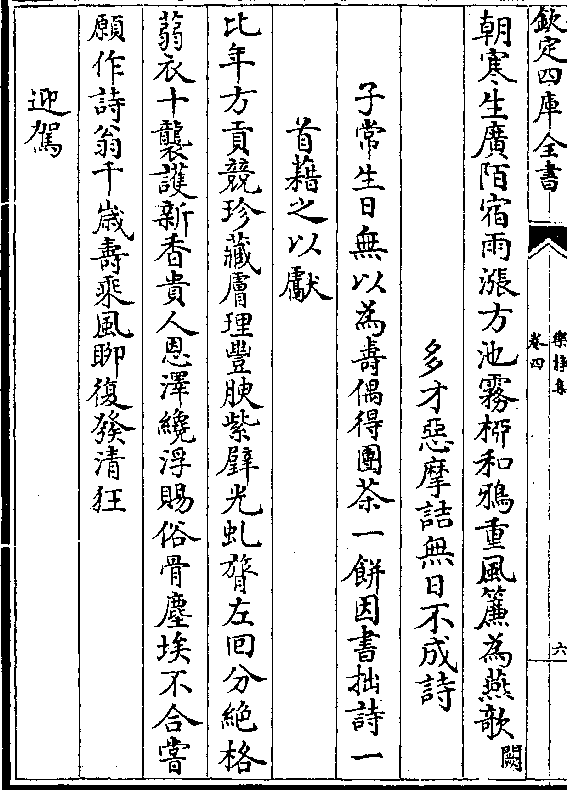 欽定四庫全書
樂□集
卷四
六
朝寒生廣陌宿雨漲方池霧栁和鴉重風簾為燕欹闕
多才惡摩詰無日不成詩
子常生日無以為壽偶得團茶一餅因書拙詩一
首藉之以獻
比年方貢競珍藏膚理豐腴紫壁光虬膂左回分絶格
蒻衣十襲護新香貴人恩澤纔浮賜俗骨塵埃不合嘗
願作詩翁千歲壽乘風聊復發清狂
迎駕